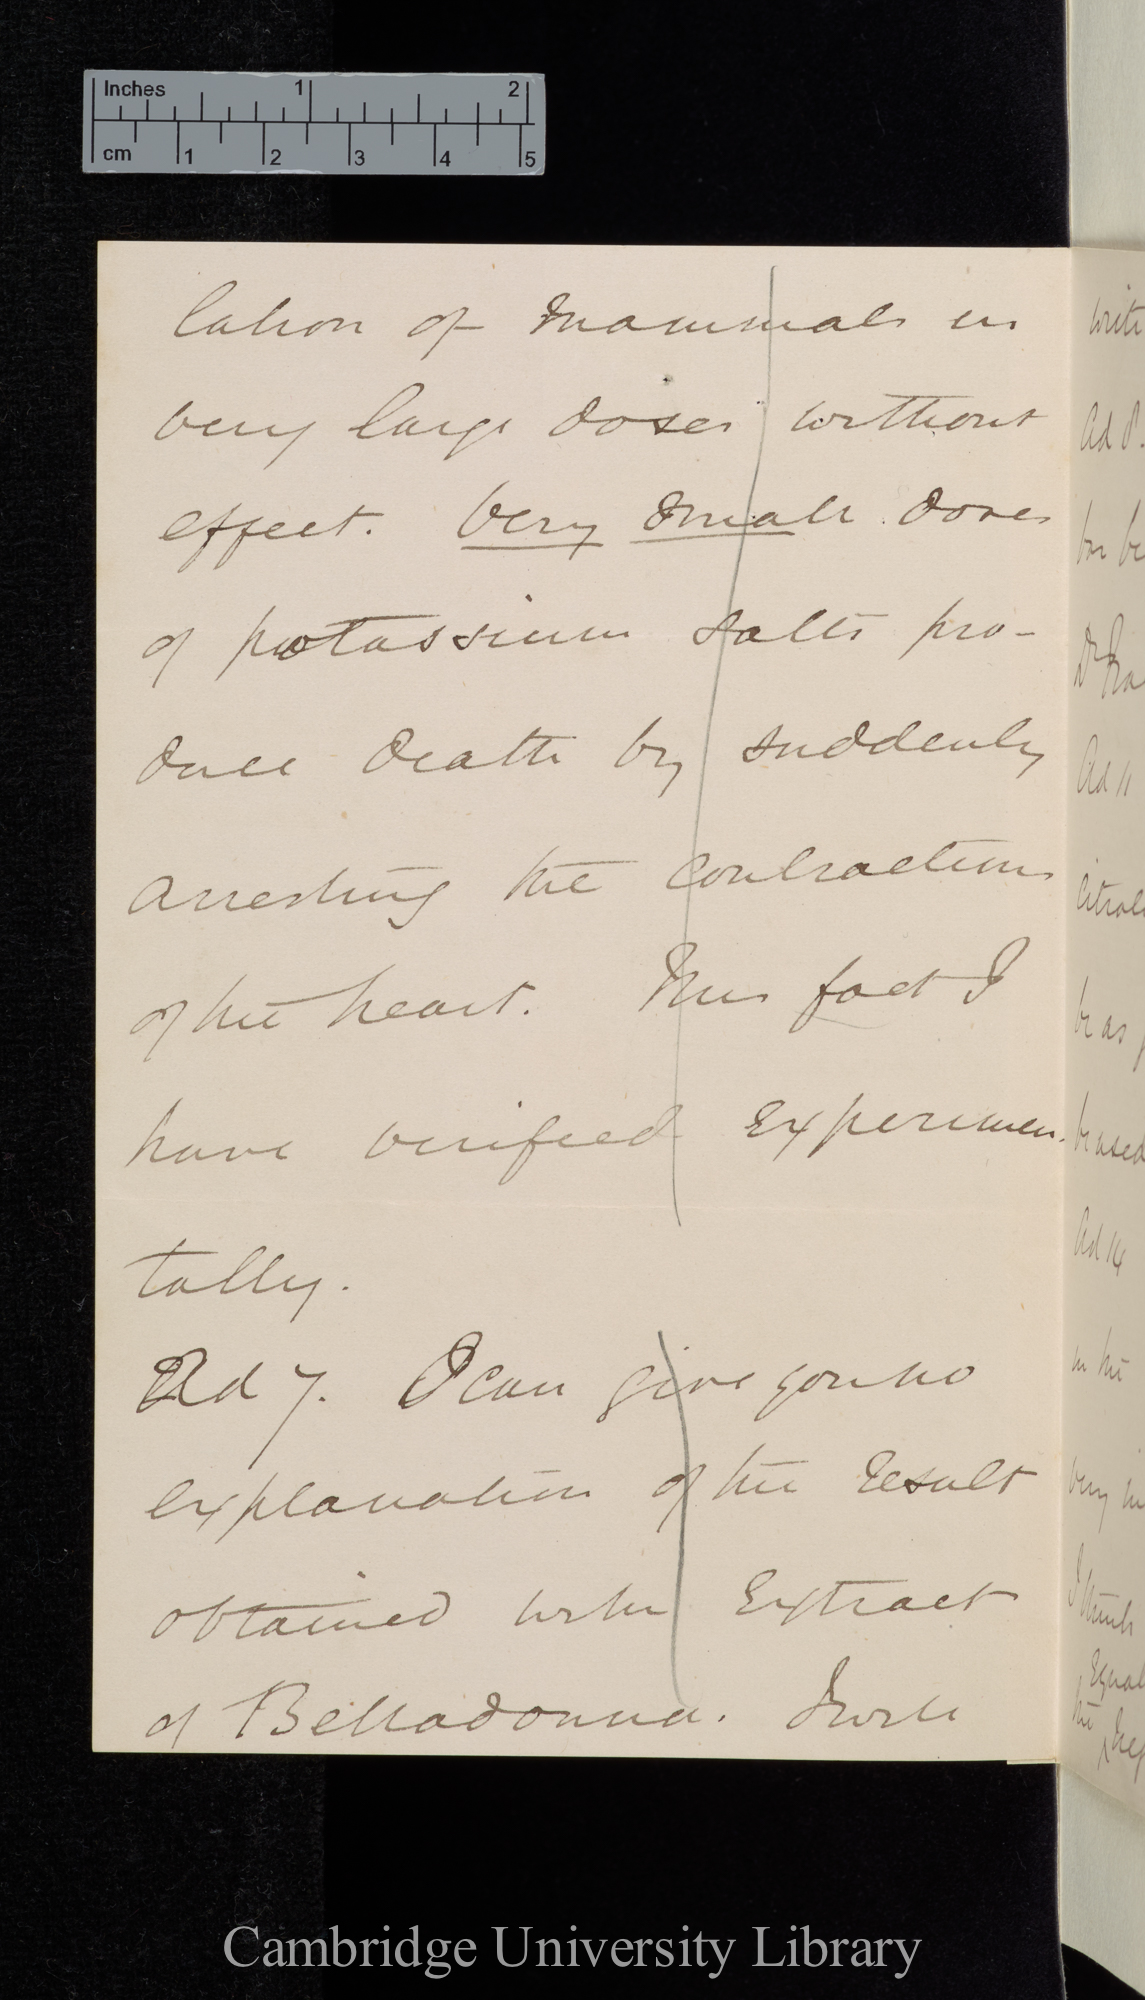 Inches 1 2
cm 1 2 3 4 5
lation of Mammals in
very large doses without
effect. Very small doses
of potassium salts pro-
duce death by suddenly
arresting the contractions
of the heart. This fact I
have verified experimen-
tally.
Ad 7. I can give you no
explanation of the result
obtained with Extract
of Belladonna. I will
Ad 8.
Ad 11
be as
be used
Ad 14
in the
very in
I think
Equal
the
Cambridge University Library